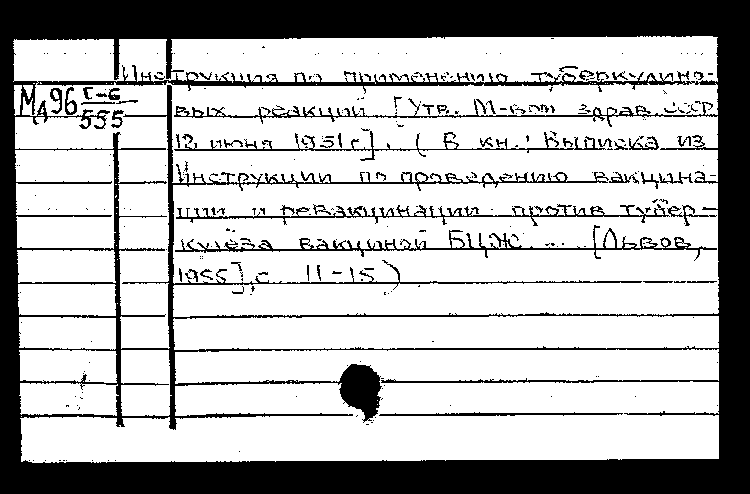 Инструкция по применению туберкулино-
МА96 Г-6/555
вых реакций [Утв. М-вом здрав. СССР
12 июня 1951г.]. ( В кн.: Выписка из
Инструкции по проведению вакцина-
ции и ревакцинации против тубер-
кулёза вакциной БЦЖ ... [Львов,
1955], с. 11-15)